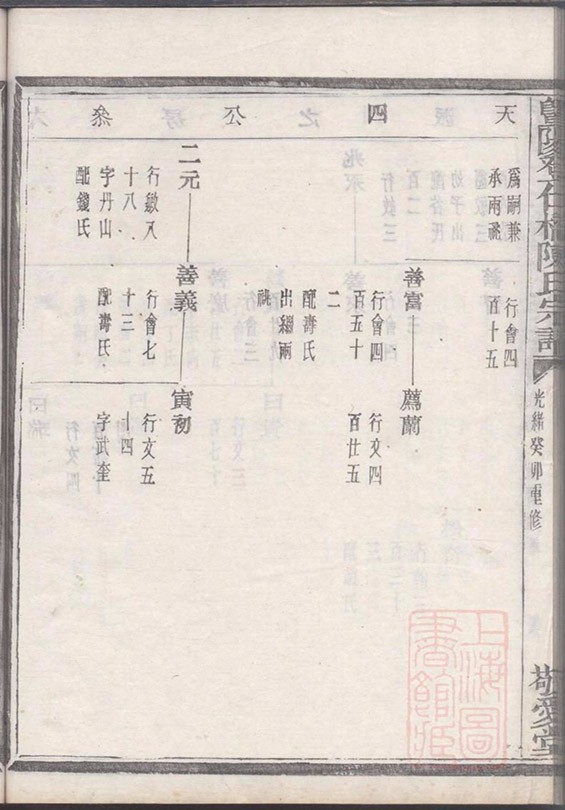 暨陽登仕橋陳氏宗譜
光緒癸卯重修
敬愛堂
天四公叅
爲嗣兼
承兩祧
行會四
百十五
善富
行會四
百五十
二
配壽氏
出繼兩
祧
薦蘭
行文四
百廿五
二元
行敏又
十八
字丹山
配錢氏
善義
行會七
十三
配壽氏
寅初
行文五
十四
字武奎
上海圖
書館藏